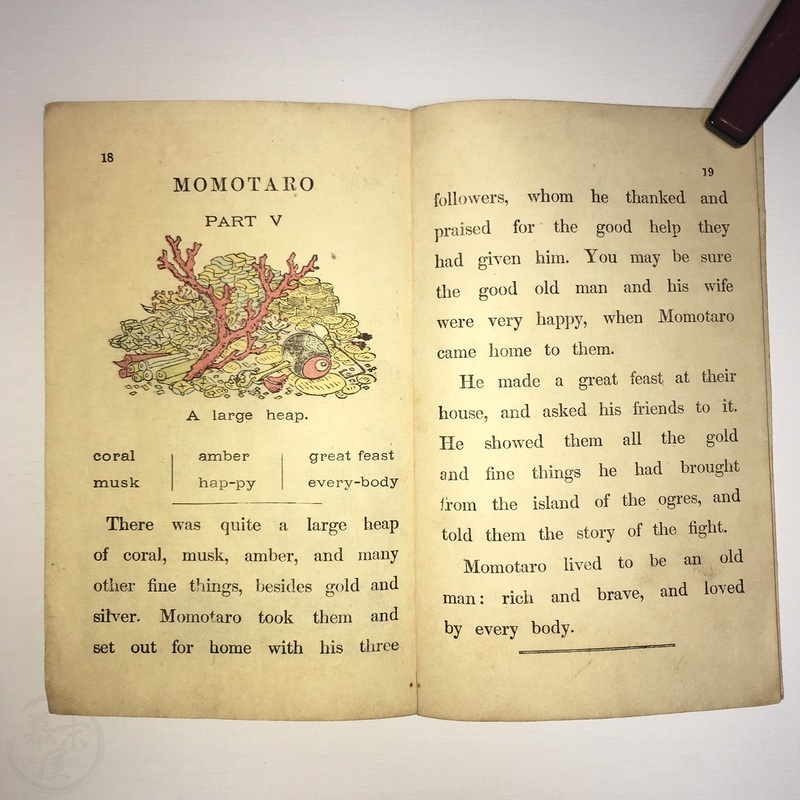 18
MOMOTARO
PART V
A large heap.
coral amber great feast
musk hap-py every-body
There was quite a large heap
of coral, musk, amber, and many
other fine things, besides gold and
silver. Momotaro took them and
set out for home with his three
19
followers, whom he thanked and
praised for the good help they
had given him. You may be sure
the good old man and his wife
were very happy, when Momotaro
came home to them.
He made a great feast at their
house, and asked his friends to it.
He showed them all the gold
and fine things he had brought
from the island of the ogres, and
told them the story of the fight.
Momotaro lived to be an old
man: rich and brave, and loved
by every body.